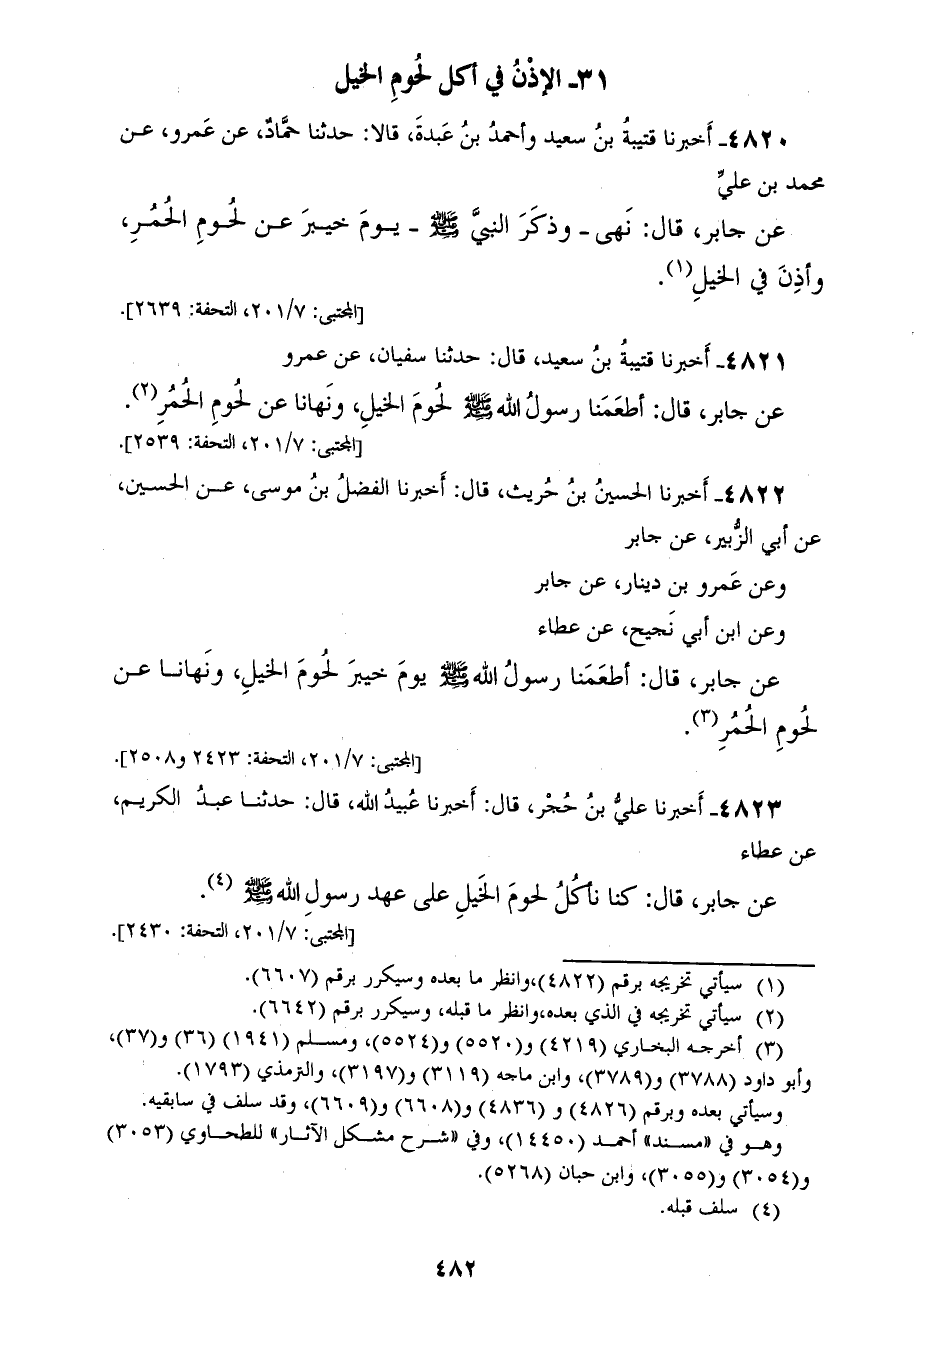 ٣١ـ الإذْنُ في أكل لُحومِ الخيل
٤٨٢٠ـ أَخبرنا قتيبةُ بنُ سعيد وأحمدُ بنُ عَبدةَ، قالا: حدثنا حمَّادٌ، عن عَمرو، عـن
محمد بن عليٍّ
عن جابر، قال: نَهى ـ وذكَرَ النبيَّ ﷺ ـ يـومَ خيـبرَ عـن لُحـومِ الحُمُـرِ،
وأذِنَ في الخيلِ(١).
[المجتبى: ٢٠١/٧، التحفة: ٢٦٣٩].
٤٨٢١ـ أَخبرنا قتيبةُ بنُ سعيد، قال: حدثنا سفيان، عن عمرو
عن جابر، قال: أطعَمَنا رسولُ الله ﷺ لُحومَ الخيلِ، ونَهانا عن لُحومِ الحُمُرِ(٢).
[المجتبى: ٢٠١/٧، التحفة: ٢٥٣٩].
٤٨٢٢ـ أَخبرنا الحسينُ بنُ حُريث، قال: أَخبرنا الفضلُ بنُ موسى، عـن الحسين،
عن أبي الزُّبير، عن جابر
وعن عَمرو بن دينار، عن جابر
وعن ابن أبي نَجيح، عن عطاء
عن جابر، قال: أطعَمَنا رسولُ الله ﷺ يومَ خيبرَ لُحومَ الخيلِ، ونَهانـا عـن
لُحومِ الحُمُرِ(٣).
[المجتبى: ٢٠١/٧، التحفة: ٢٤٢٣ و٢٥٠٨].
٤٨٢٣ـ أَخبرنا عليُّ بنُ حُجْر، قال: أَخبرنا عُبيدُ الله، قال: حدثنـا عبـدُ الكريـم،
عن عطاء
عن جابر، قال: كنا نأكُلُ لحومَ الخَيلِ على عهد رسولِ الله ﷺ (٤).
[المجتبى: ٢٠١/٧، التحفة: ٢٤٣٠].
(١) سيأتي تخريجه برقم (٤٨٢٢)،وانظر ما بعده وسيكرر برقم (٦٦٠٧).
(٢) سيأتي تخريجه في الذي بعده،وانظر ما قبله، وسيكرر برقم (٦٦٤٢).
(٣) أخرجـه البخـاري (٤٢١٩) و(٥٥٢٠) و(٥٥٢٤)، ومسـلم (١٩٤١) (٣٦) و(٣٧)،
وأبو داود (٣٧٨٨) و(٣٧٨٩)، وابن ماجه (٣١١٩) و(٣١٩٧)، والترمذي (١٧٩٣).
وسيأتي بعده وبرقم (٤٨٢٦) و (٤٨٣٦) و(٦٦٠٨) و(٦٦٠٩)، وقد سلف في سابقيه.
وهـو في «مسـند» أحمـد (١٤٤٥٠)، وفي «شـرح مشـكل الآثـار» للطحـاوي (٣٠٥٣)
و(٣٠٥٤) و(٣٠٥٥)، وابن حبان (٥٢٦٨).
(٤) سلف قبله.
٤٨٢